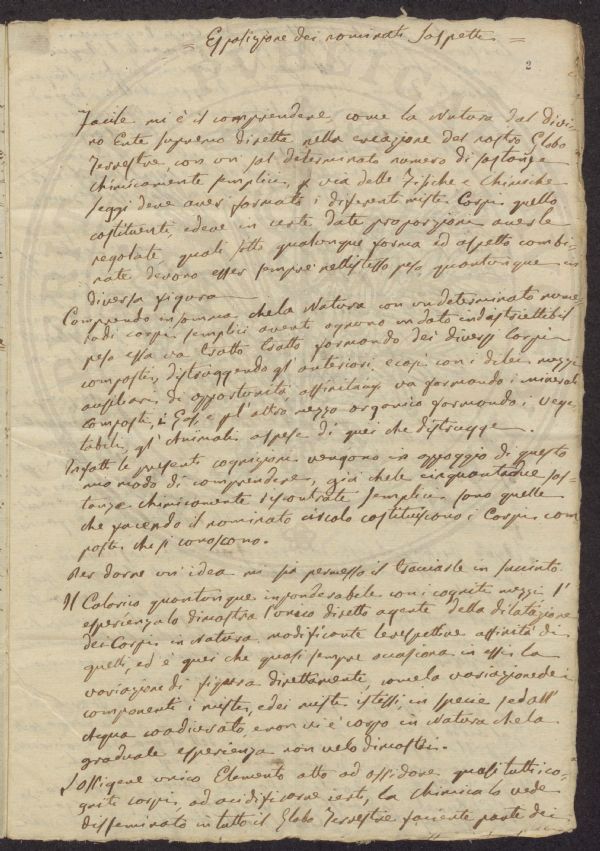 = Esposizione dei nominati Sospetti =
2
Facile mi è il comprendere come la Natura dal divi-
no Ente supremo diretta nella creazione del nostro Globo
Terrestre, con un sol determinato numero di sostanze
chimicamente semplici, p via delle Fisiche e Chimiche
leggi deve aver formato i differenti misti Corpi quello
costituenti, e deve in certe date proporzioni averle
regolate, quali sotto qualunque forma ed aspetto combi-
nate devono esser sempre nell'istesso peso, quantunque in
diversa figura
Comprendo insomma che la Natura con un determinato nume
ro di corpi semplici aventi ognuno un dato indistruttibil
peso essa va Esatto Esatto formando dei diversi Corpi
composti, distruggendo gl'anteriori, e così con i di lei mezzi
ausiliari di opportunità, affinità va formando i minerali
composti, i Gas, e pl'altro mezzo organico formando i vege
tabili, gl'Animali a spese di quei che distrugge.
Infatti le presenti cognizioni vengono in appoggio di questo
mio modo di comprendere, già che le cinquantadue sos-
tanze chimicamente riscontrate semplici sono quelle
che facendo il nominato circolo costituiscono i Corpi com
posti che si conoscono.
Per darne un'idea mi sia permesso il tracciarle in succinto
Il Calorico quantunque imponderabile con i cogniti mezzi, l'
esperienza lo dimostra l'unico diretto agente della dilatazione
dei Corpi in Natura modificante le respettive affinità di
quelli, ed è quei che quasi sempre occasiona in essi la
variazione di figura direttamente, come la variazione dei
componenti i misti, e dei misti istessi, in specie se dall'
Acqua coadiuvato, e non vi è corpo in Natura che la
graduale esperienza non ve lo dimostri.
L'ossigene unico Elemento atto ad ossidare quasi tutti i co-
gniti corpi, ad acidificarne certi, la chimica lo vede
disseminato in tutto il Globo Terrestre facente parte dei